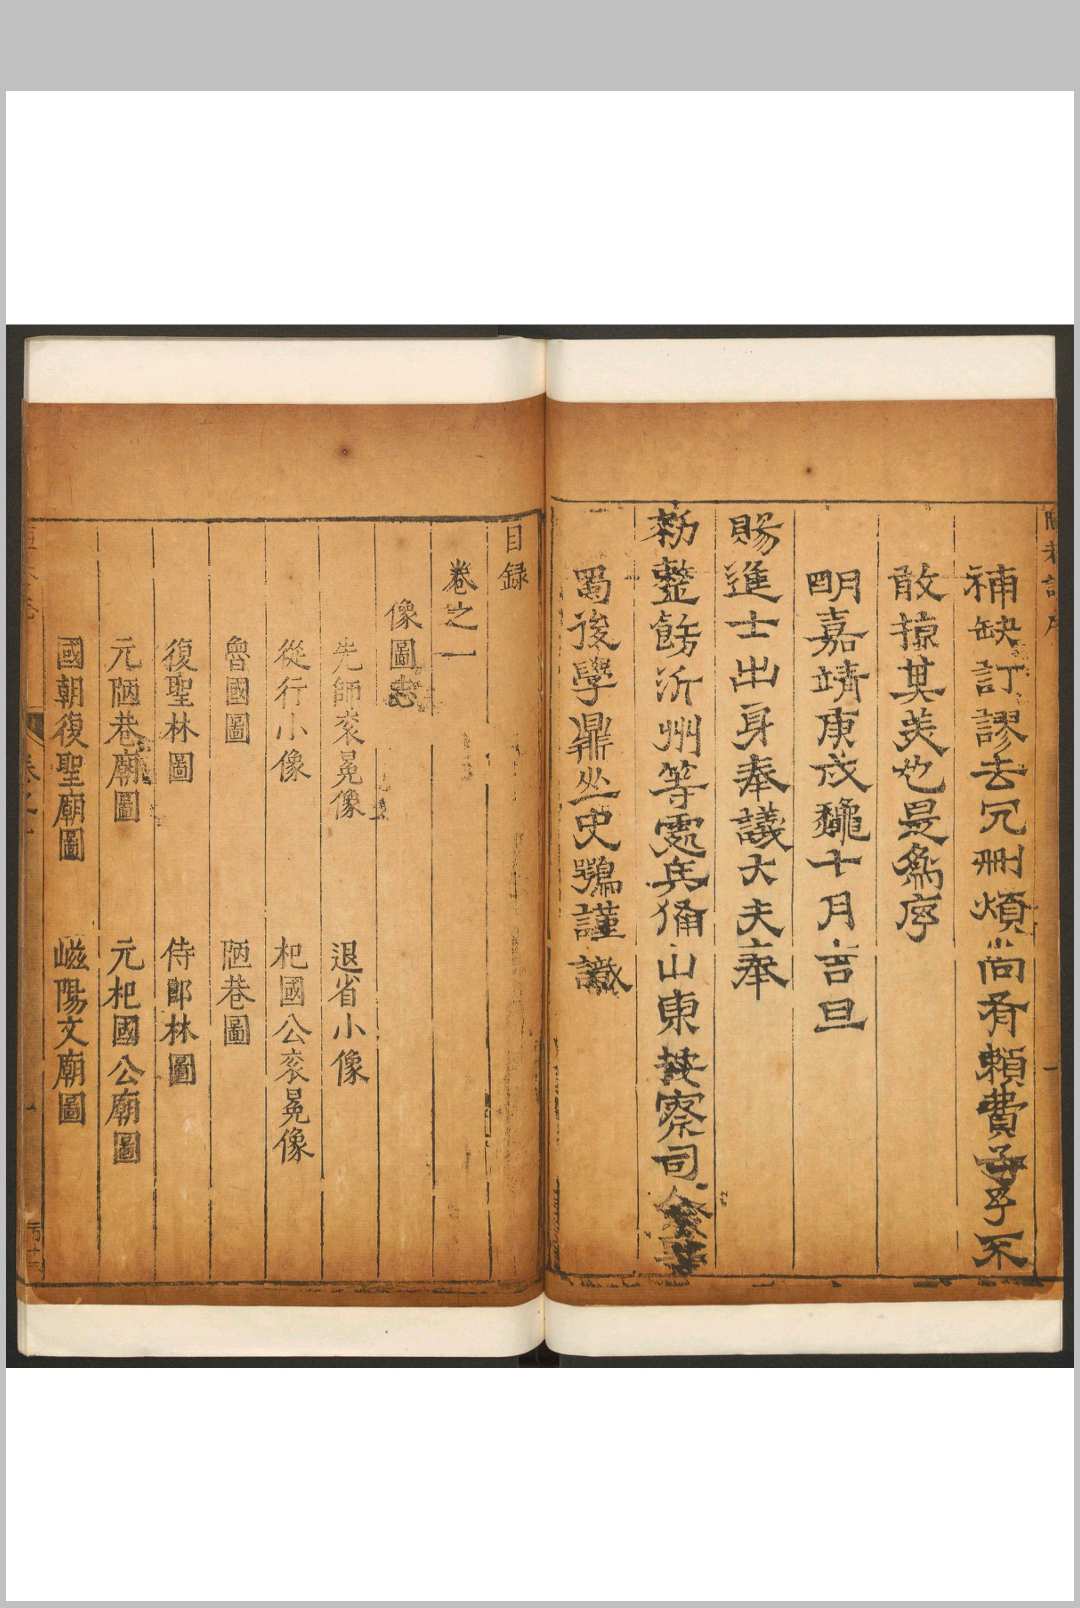 補缺訂謬去冗刪煩尚有賴費子予不
敢掠其美也是爲序
明嘉靖庚戌龝十月吉旦
賜進士出身奉議大夫奉
勑整飭沂州等處兵備山東按察司僉事
蜀後學鼎丠史鶚謹識
目録
卷之一
像圖志
先師衮冕像 退省小像
從行小像 杞國公衮冕像
魯國圖 陋巷圖
復聖林圖 侍郎林圖
元陋巷廟圖 元杞國公廟圖
國朝復聖廟圖 嵫陽文廟圖